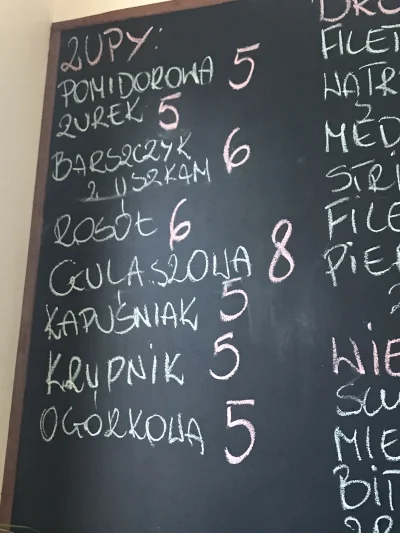 ZUPY:
POMIDOROWA 5
ŻUREK 5
BARSZCZYK 6
Z USZKAM
ROSÓŁ 6
GULASZOWA 8
KAPUŚNIAK 5
KRUPNIK 5
OGÓRKOWA 5
FILET
WĄTR
Z
MED
STRI
FILE
PIE
WIE
MIE
BIT